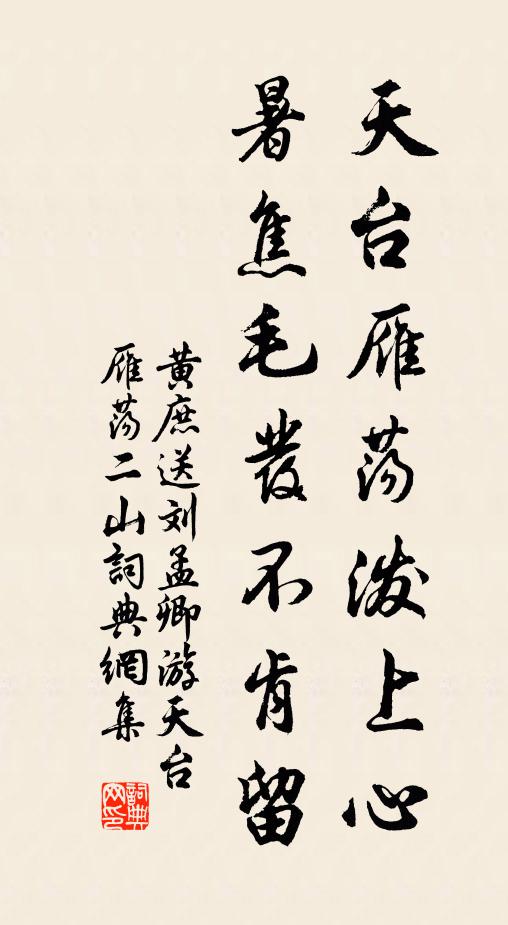 天台雁荡泼上心
暑焦毛发不肯留
黄庶送刘孟卿游天台
雁荡二山詞典網集
詞典网印